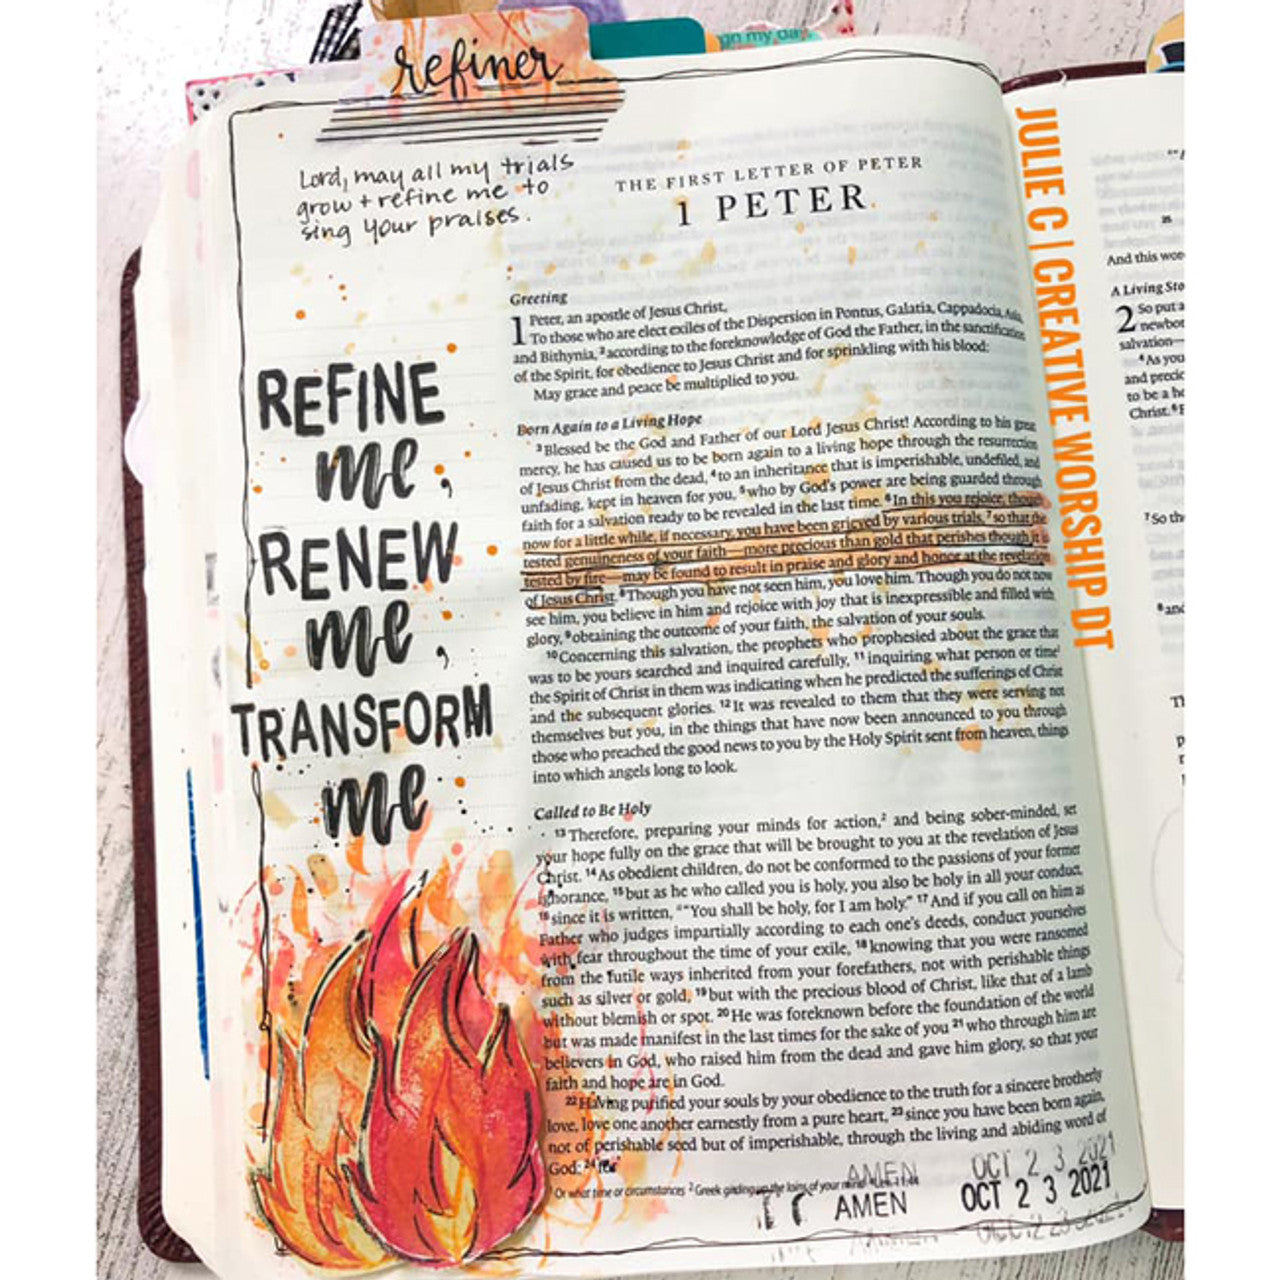 refiner
gn my day
Lord, may all my trials
grow + refine me to
sing your praises.
REFINE
me,
RENEW
me,
TRANSFORM
me
THE FIRST LETTER OF PETER
1 PETER
Greeting
1 Peter, an apostle of Jesus Christ,
To those who are elect exiles of the Dispersion in Pontus, Galatia, Cappadocia, Asia,
and Bithynia, 2according to the foreknowledge of God the Father, in the sanctification
of the Spirit, for obedience to Jesus Christ and for sprinkling with his blood:
May grace and peace be multiplied to you.
Born Again to a Living Hope
3Blessed be the God and Father of our Lord Jesus Christ! According to his great
mercy, he has caused us to be born again to a living hope through the resurrection
of Jesus Christ from the dead, 4to an inheritance that is imperishable, undefiled, and
unfading, kept in heaven for you, 5who by God's power are being guarded through
faith for a salvation ready to be revealed in the last time. 6In this you rejoice, though
now for a little while, if necessary, you have been grieved by various trials, 7so that the
tested genuineness of your faith—more precious than gold that perishes though it is
tested by fire—may be found to result in praise and glory and honor at the revelation
of Jesus Christ. 8Though you have not seen him, you love him. Though you do not now
see him, you believe in him and rejoice with joy that is inexpressible and filled with
glory, 9obtaining the outcome of your faith, the salvation of your souls.
10Concerning this salvation, the prophets who prophesied about the grace that
was to be yours searched and inquired carefully, 11inquiring what person or time1
the Spirit of Christ in them was indicating when he predicted the sufferings of Christ
and the subsequent glories. 12It was revealed to them that they were serving not
themselves but you, in the things that have now been announced to you through
those who preached the good news to you by the Holy Spirit sent from heaven, things
into which angels long to look.
Called to Be Holy
13Therefore, preparing your minds for action,2 and being sober-minded, set
your hope fully on the grace that will be brought to you at the revelation of Jesus
Christ. 14As obedient children, do not be conformed to the passions of your former
ignorance, 15but as he who called you is holy, you also be holy in all your conduct,
16since it is written, "You shall be holy, for I am holy." 17And if you call on him as
Father who judges impartially according to each one's deeds, conduct yourselves
with fear throughout the time of your exile, 18knowing that you were ransomed
from the futile ways inherited from your forefathers, not with perishable things
such as silver or gold, 19but with the precious blood of Christ, like that of a lamb
without blemish or spot. 20He was foreknown before the foundation of the world
but was made manifest in the last times for the sake of you 21who through him are
believers in God, who raised him from the dead and gave him glory, so that your
faith and hope are in God.
22Having purified your souls by your obedience to the truth for a sincere brotherly
love, love one another earnestly from a pure heart, 23since you have been born again,
not of perishable seed but of imperishable, through the living and abiding word of
God; 24
1 Or what time or circumstances 2 Greek girding up the loins of your mind
AMEN OCT 2 3 2021
AMEN OCT 2 3 2021
JULIE C | CREATIVE WORSHIP DT
25
And this
A Living
2 So put
salvation—
4As you
and
to be a
Christ.
7So